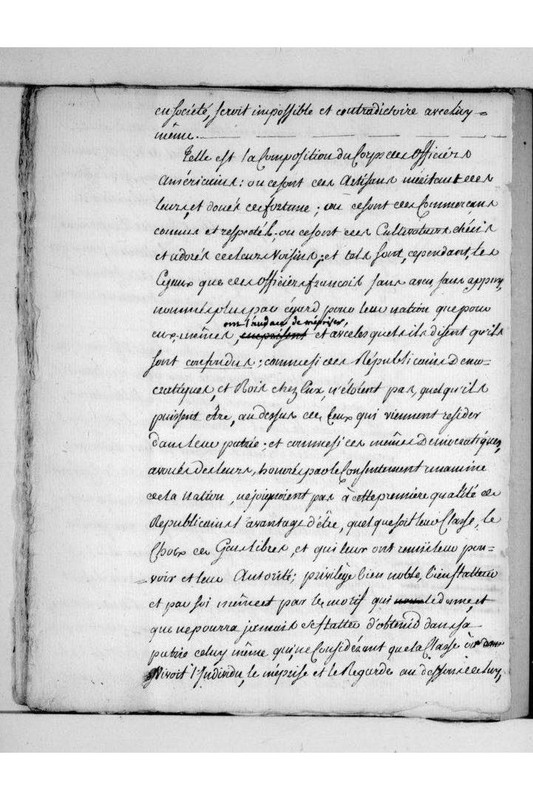 en société, seroit impossible et contradictoire avec luy-
même.
Telle est la Composition du Corps des Officiers
Américains: ou ce sont des Artisans méritant des
leurs, et doués de fortune; ou ce sont des Commerçans
connus et respectés; ou ce sont des Cultivateurs chéris
et adorés de leurs Voisins; et tels sont, cependant, les
Ceux que des Officiers françois sans aveu, sans appuy,
nommés plus par égard pour leur nation que pour
ont l'audace de mépriser,
eux-mêmes méprisent et avec lesquels ils disent qu'ils
sont confondus; comme si des Républicains Démo-
cratiques, et Rois chez Eux, n'étoient pas, quelqu'ils
puissent être, au dessus de Ceux qui viennent résider
dans leur patrie; et comme si ces mêmes Démocratiques,
avoués des leurs, honorés par le Consentement unanime
de la Nation, ne joignoient pas à cette première qualité de
Républicains l'avantage d'être, quelque soit leur Classe, le
Choix de Gens libres, et qui leur ont remis leur pou-
voir et leur Autorité; privilège bien noble, bien flatteur
et par soi même et par le motif qui le donne, et
que ne pourra jamais se flatter d'obtenir dans sa
patrie celuy même qui, ne Considérant que la Classe où
vivoit l'Individu, le méprise et le Regarde au dessous de luy,